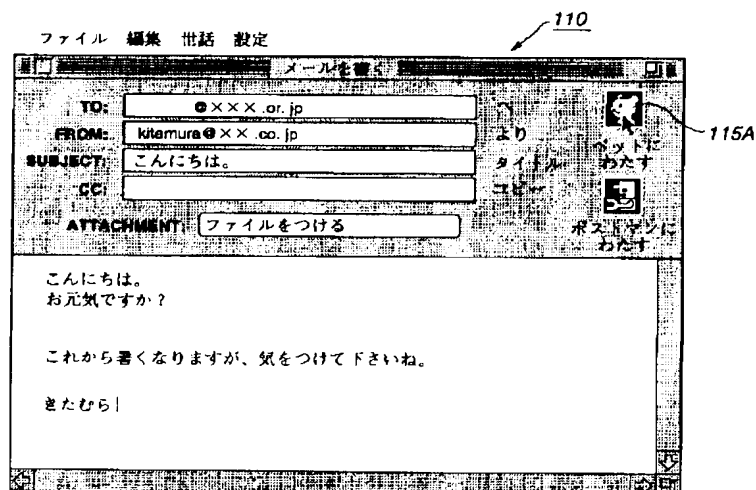 110
ファイル 編集 世話 設定
メールを書く
TO: @×××.or.jp へ
FROM: kitamura@××.co.jp より
SUBJECT: こんにちは。 タイトル
CC: コピー
ATTACHMENT: ファイルをつける
115A
ペットに
わたす
ポストマンに
わたす
こんにちは。
お元気ですか？
これから暑くなりますが、気をつけて下さいね。
きたむら